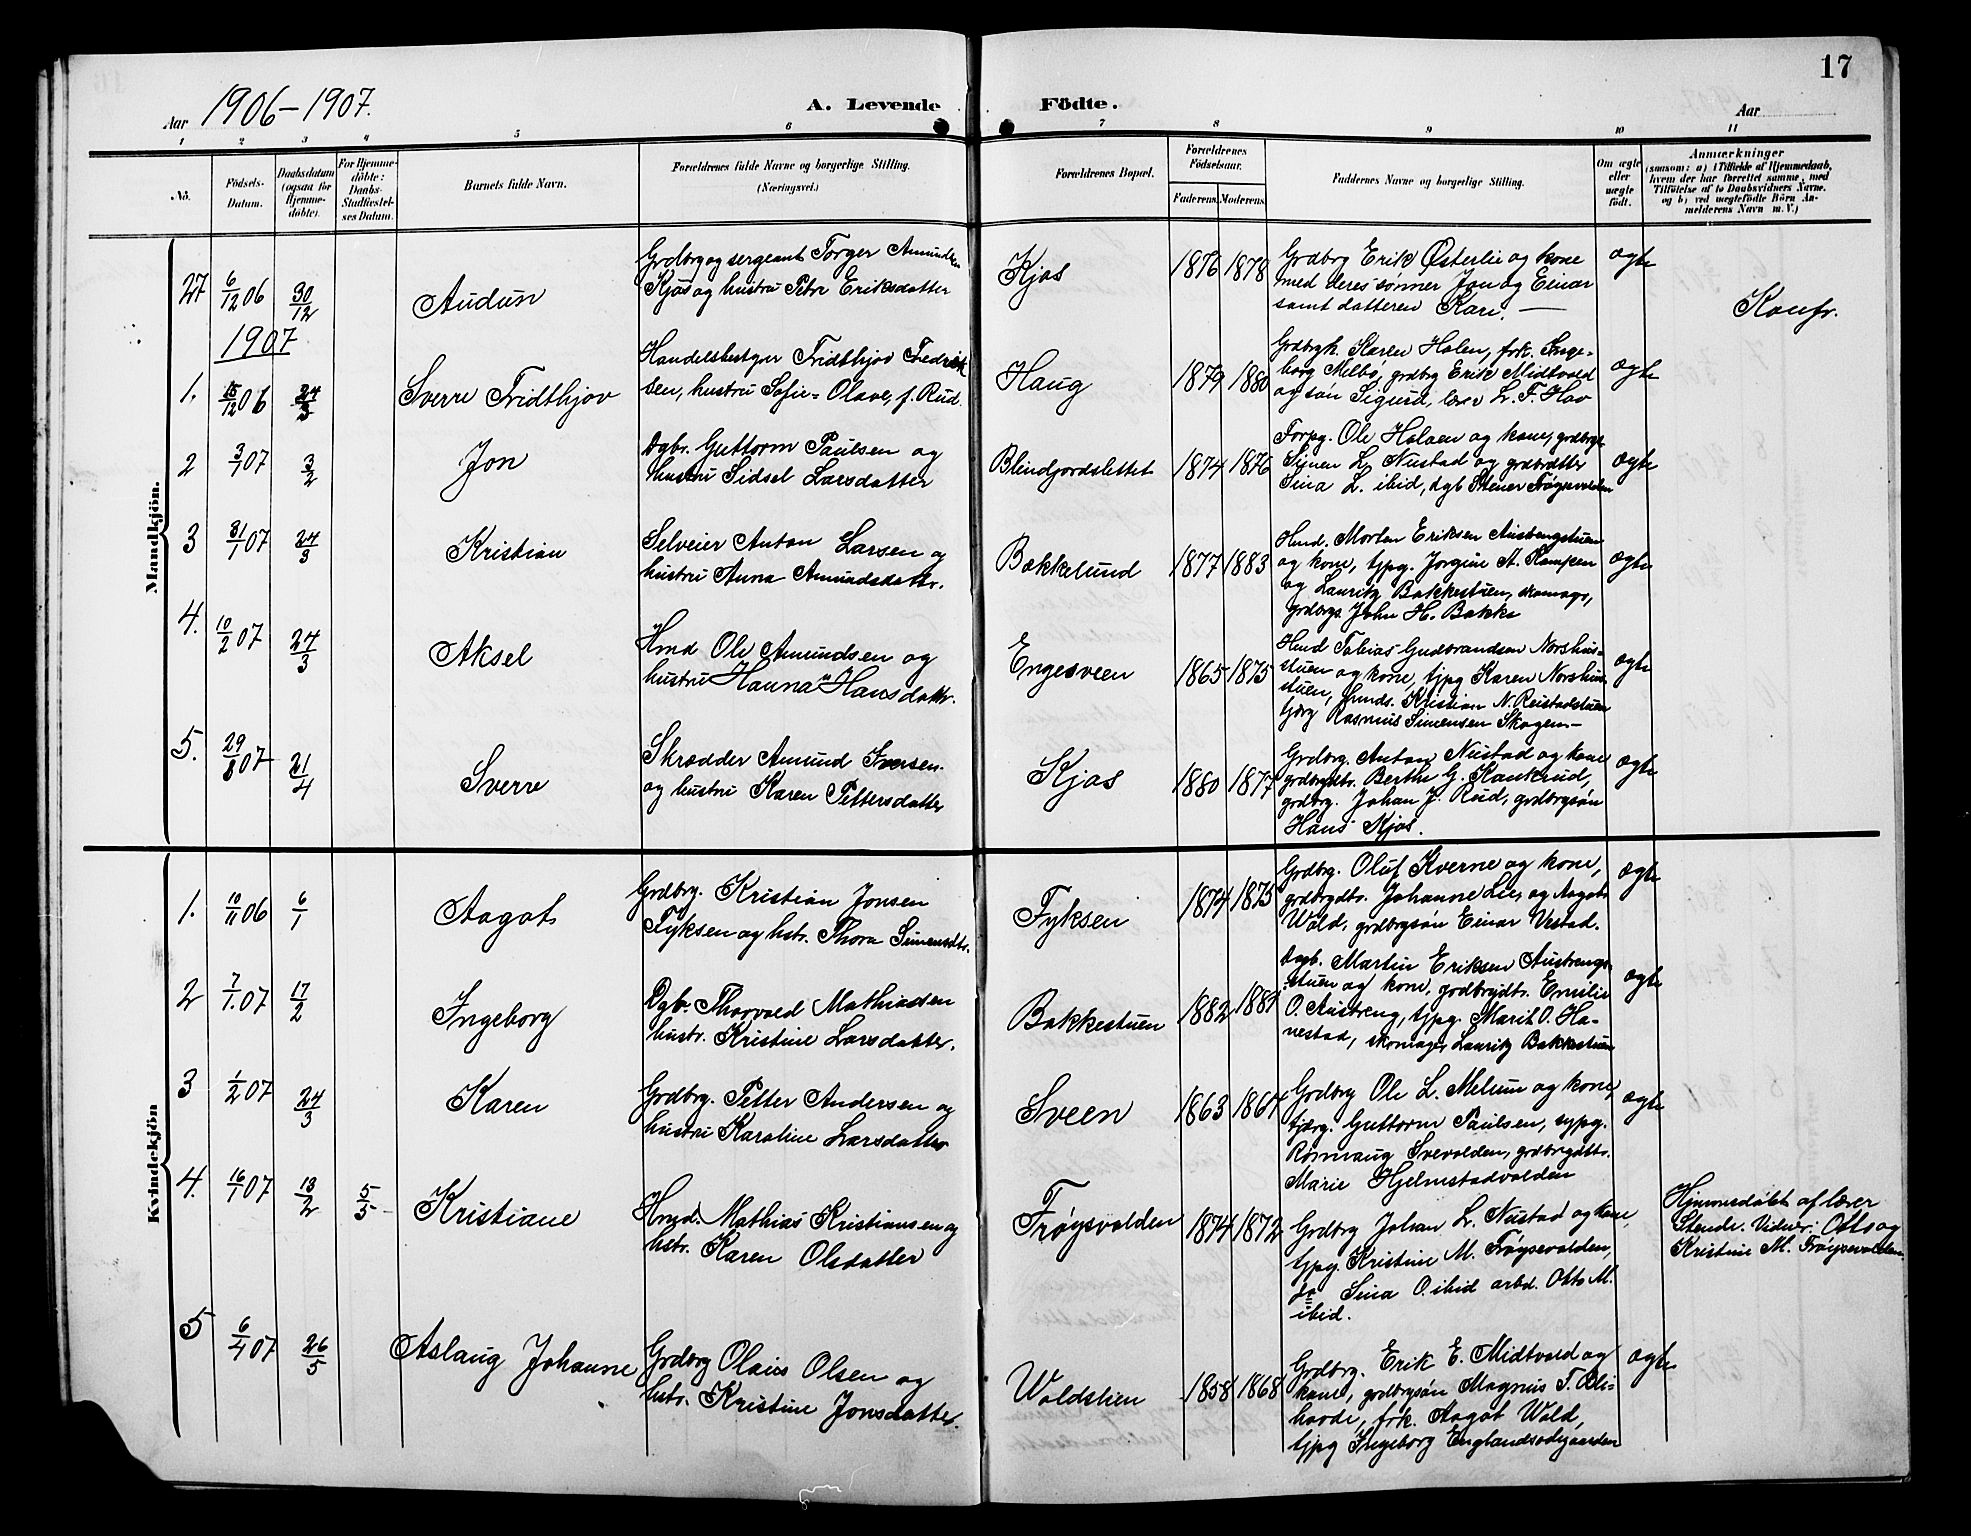 17
Aar 1906-1907.
A. Levende Födte.
Aar
1 2 3 4 5 6 7 8 9 10 11
No.
Födsels-
Datum.
Daabsdatum
(ogsaa for
Hjemme-
döbte).
For Hjemme-
döbte:
Daabs-
Stadfæstel-
ses Datum.
Barnets fulde Navn.
Forældrenes fulde Navne og borgerlige Stilling.
(Næringsvei.)
Forældrenes Bopæl.
Forældrenes
Födselsaar.
Faderens. Moderens.
Faddernes Navne og borgerlige Stilling.
Om ægte
eller
uægte
födt.
Anmærkninger
(saasom: a) i Tilfælde af Hjemmedaab,
hvem der har forrettet samme, med
Tilföielse af to Daabsvidners Navne.
og b) ved uægtefödte Börn An-
melderens Navn m. V.)
Mandkjön.
27 6/12 06 30/12 Audun
Grdbrg og sergeant Torger Amundsen
Kjos og hustru Petr Eriksdatter
Kjos 1876 1878
Grdbrg Erik Østerlie og kone
med deres sønner Jon og Einar
samt datteren Kari. —
ægte
Konfr.
1907
1. 15/12 06 24/3 Sverre Fridthjov
Handelsbestyer Fridthjov Fredrik
sen, hustru Sofie Olave, f. Rud.
Haug 1879 1880
Grdbrgk. Karen Holen, frk. Inge-
borg Melbö, grdbrg Erik Midtvold
og søn Sigurd, lærer L. F. Hov
ægte
2 3/1 07 3/2 Jon
Dgbr. Guttorm Paulsen og
hustru Sidsel Larsdatter
Blindjordslettet 1874 1876
Forpg. Ole Holoen og kone, grdbrgs
Simen L. Nustad og grdbrdtter
Sina L. ibid, dgb Stener Frøysvolden
ægte
3 31/1 07 24/3 Kristian
Selveier Anton Larsen og
hustru Anna Amundsdattr.
Bakkelund 1877 1883
Hmd. Morten Eriksen Austengstuen
og kone, tjpg. Jorgine A. Kampen
og Lauritz Bakkestuen, skomagr,
grdbrgs John H. Bakke
ægte
4. 10/2 07 24/3 Aksel
Hmd Ole Amundsen og
hustru Hanna Hansdattr.
Engesveen 1865 1875
Hmd Tobias Gudbrandsen Norshus-
stuen og kone, tjpg Karen Norshus-
stuen, hmds. Kristian N. Reistadstuen
tjgrg Rasmus Simensen Skogen —
ægte
5. 29/3 07 21/4 Sverre
Skrædder Amund Iversen
og hustru Karen Pettersdatter
Kjos 1880 1877
Grdbrg. Anton Nustad og kone
grdbrgdtr. Berthe G. Kankrud,
grdbrg. Johan J. Rud, grdbrgsøn
Hans Kjos.
ægte
Kvindekjön
1. 10/11 06 6/1 Aagot
Grdbrg. Kristian Jonsen
Fyksen og hstr. Thora Simensdtr.
Fyksen 1874 1875
Grdbrg. Oluf Kverne og kone,
grdbrgdtr. Johanne Lie, og Aagot
Wold, grdbrgsøn Einar Vestad.
ægte
2 7/1 07 17/2 Ingeborg
Dgbr. Thorvald Mathiasen
hustr. Kristine Larsdatter.
Bakkestuen 1882 1884
Dagb. Martin Eriksen Austrengs-
stuen og kone, grdbrgdtr. Emilie
O. Austreng, tjpg. Marit O. Ha-
nestad, skomager Lauritz Bakkestuen
ægte
3 1/2 07 24/3 Karen
Grdbrg. Petter Andersen og
hustru Karoline Larsdatter
Sveen 1863 1864
Grdbrg Ole L. Melum og kone,
tjærg. Guttorm Paulsen, sypg.
Rönnaug Svevolden, grdbrgdtr.
Marie Hjelmstadvolden
ægte
4. 16/1 07 13/2 5/5 Kristiane
Hmd. Mathias Kristiansen og
hstr. Karen Olsdatter
Frøysvolden 1874 1872
Grdbrg Johan L. Nustad og kone,
tjpg. Kristine M. Frøysevolden,
do Sina O. ibid arbd. Otto M.
ibid.
Hjemmedøbt af lærer
Stende. Vidner: Otto og
Kristine M. Frøysevolden
5 6/4 07 26/5 Aslaug Johanne
Grdbrg Olaus Olsen og
hstr. Kristine Jonsdatter.
Woldstien 1858 1868
Grdbrg. Erik E. Midtvold og
kone, grdbrgsøn Magnus T. Bli-
havde, frk. Aagot Wold,
tjpg Ingeborg Englandsødegaarden
ægte